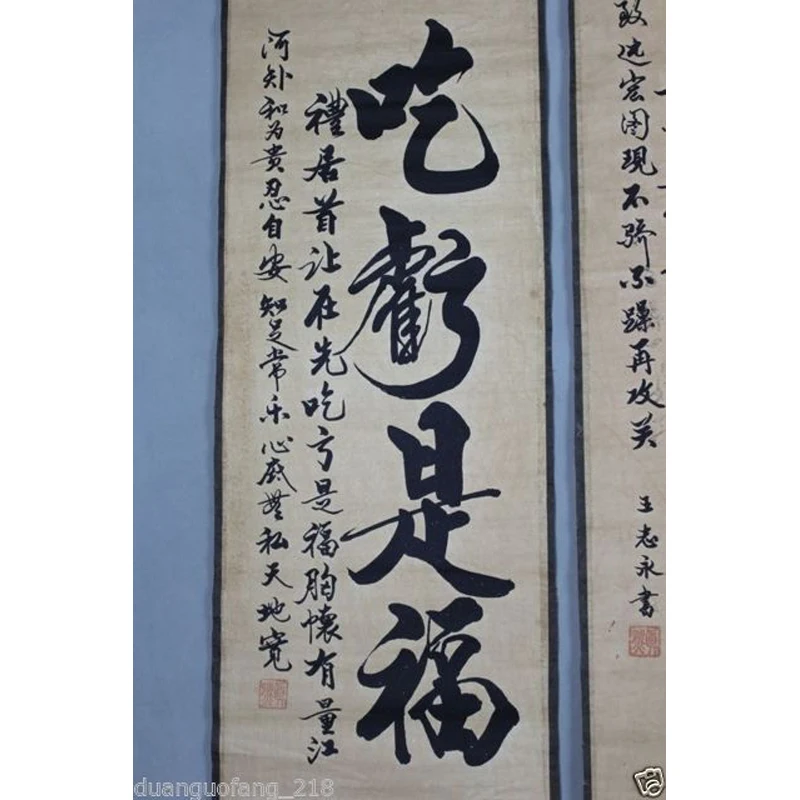 致远宏图现不骄不躁再攻关
王志永書
吃虧是福
禮居首让在先吃亏是福胸懷有量江
河 和为贵忍自安知足常乐心底無私天地寬
duanguofang_218